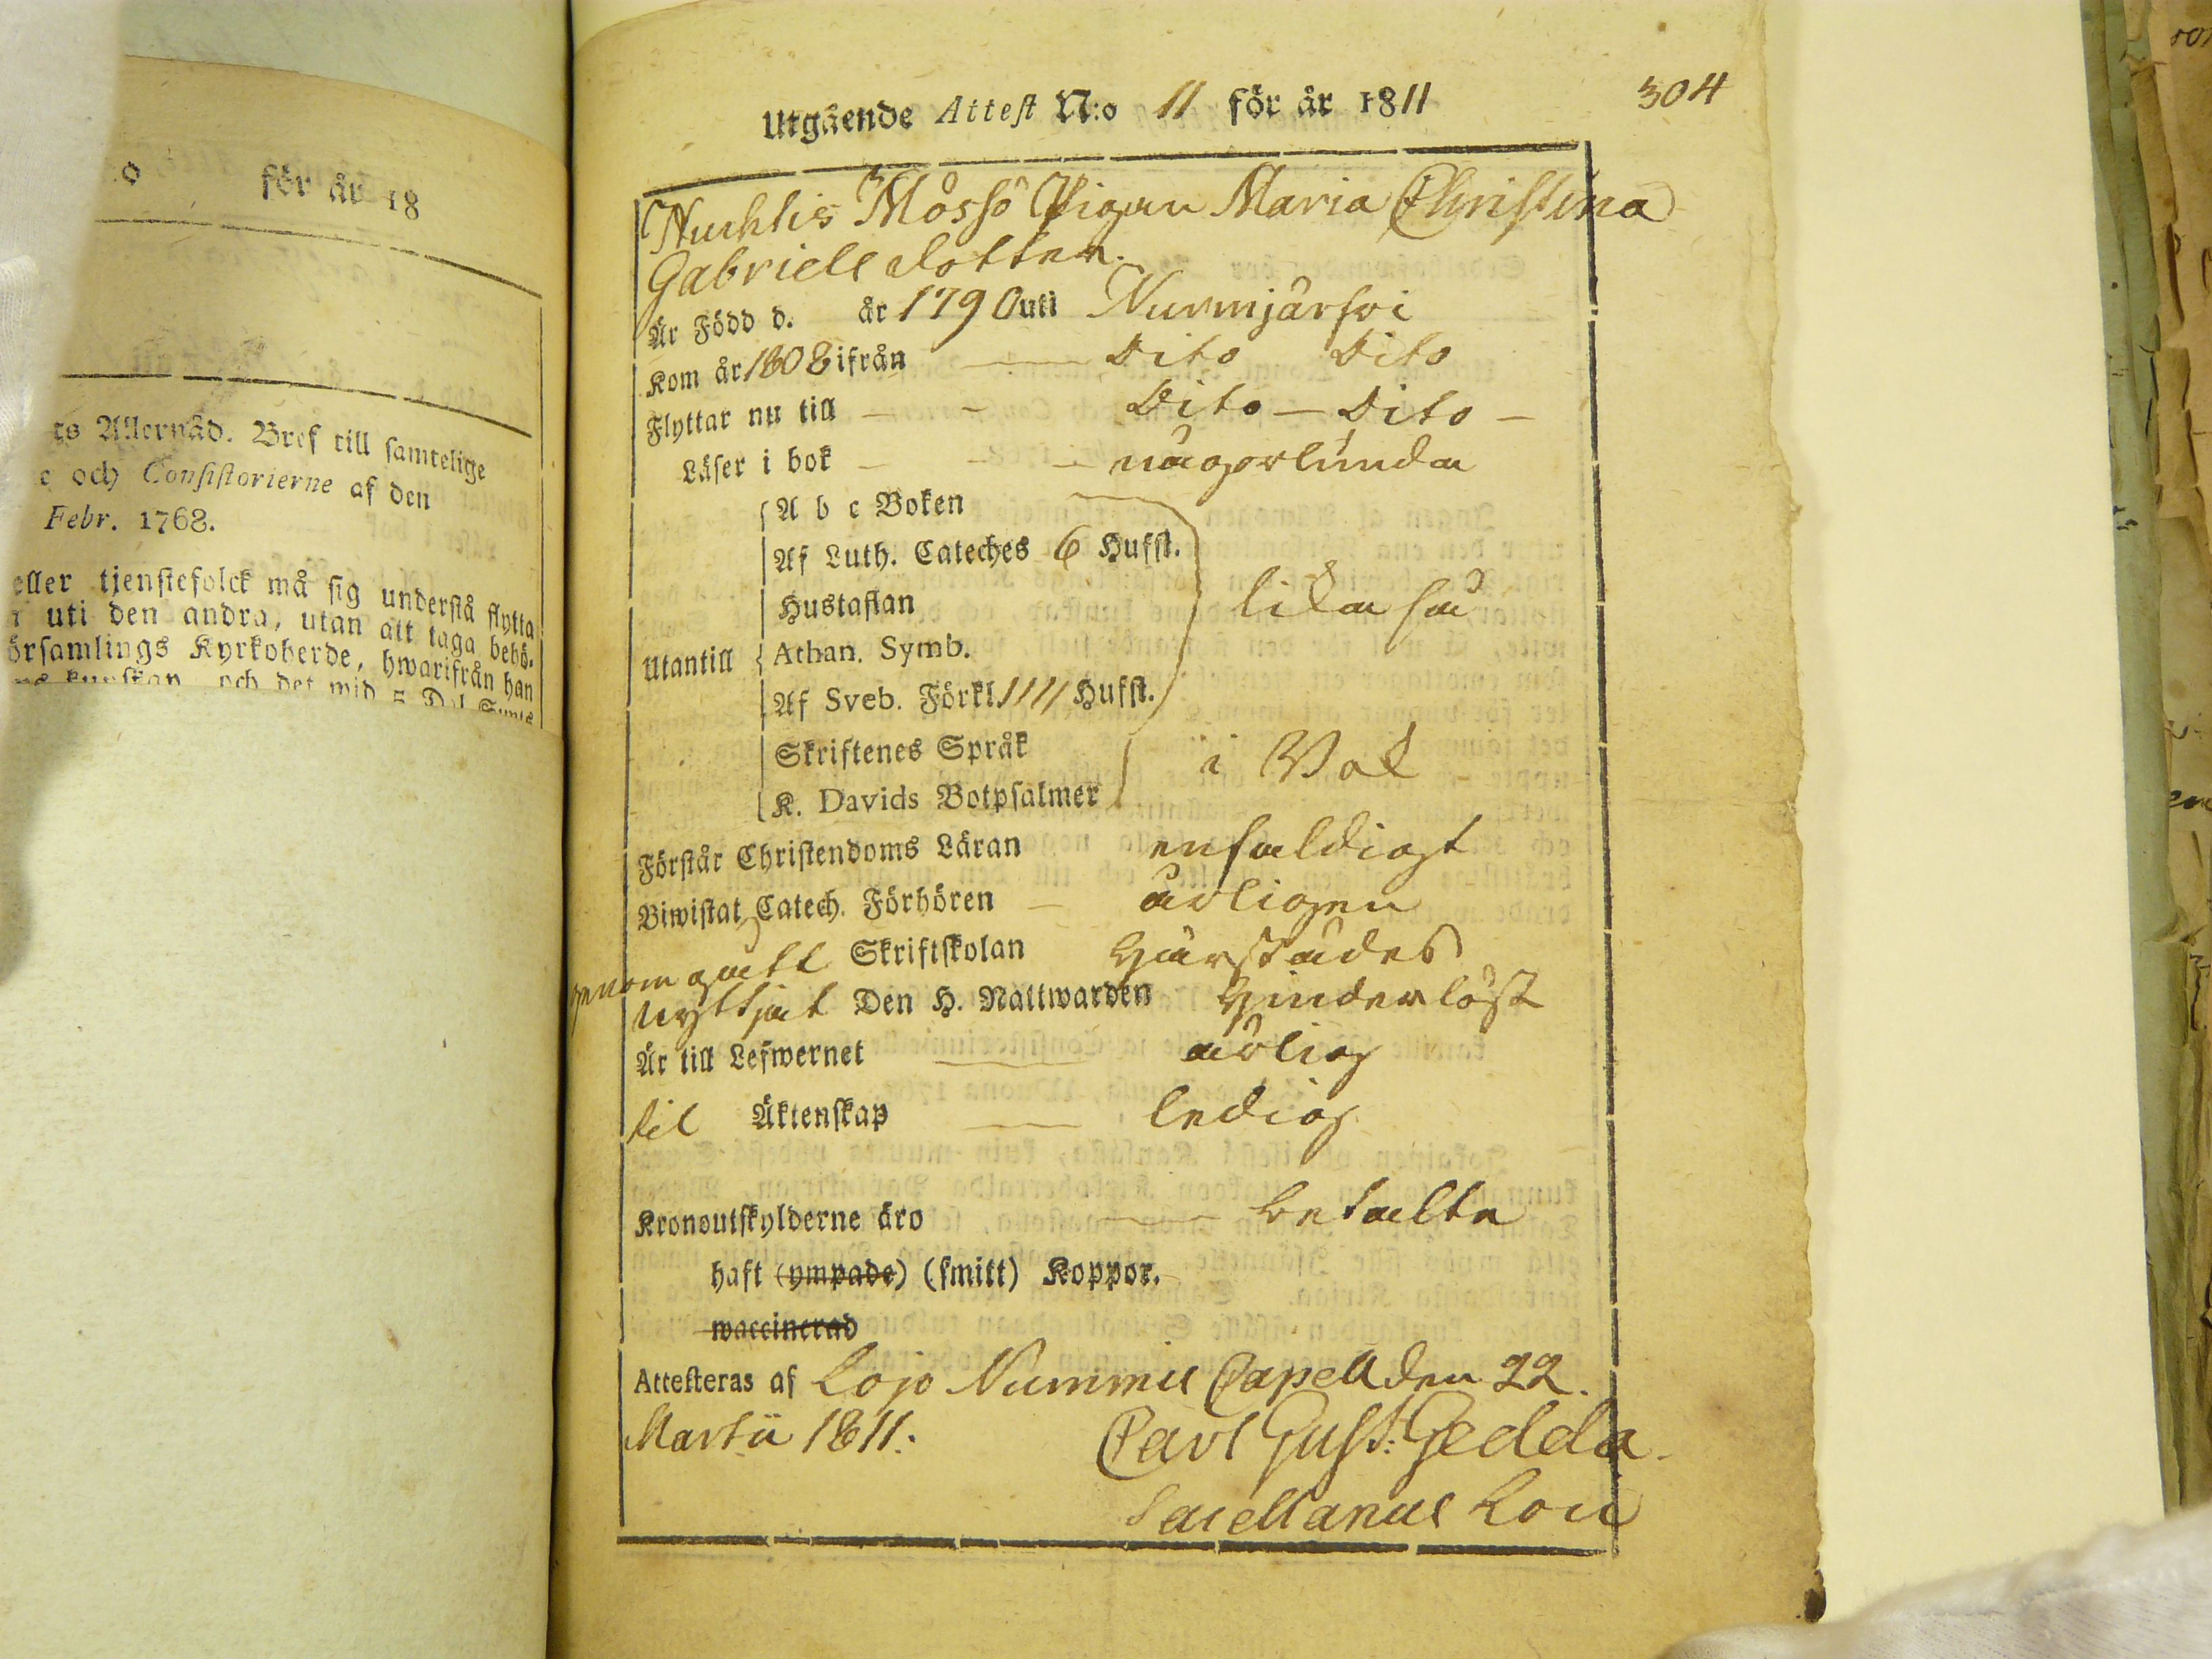 :o för år 18
gs Allernåd. Bref till samtelige
e och Consistorierne af den
Febr. 1768.
eller tjenstefolck må sig understå flytta
uti den andra, utan att taga behö-
örsamlings Kyrkoherde, hwarifrån han
och det wid 5 Dal.
304
Utgående Attest N:o 11 för år 1811
Huchtis Mossö Pigan Maria Christina
Gabriels dotter.
Är Född d. år 1790 uti Nurmijärfvi
Kom år 1808 ifrån — Dito Dito
Flyttar nu till — - Dito — Dito —
Läser i bok — - — någorlunda
A b c Boken
Af Luth. Cateches 6 Hufst.
Hustaflan lika så
Utantill Athan. Symb.
Af Sveb. Förkl. 1111 Hufst.
Skriftenes Språk i Bok
K. Davids Botpsalmer
Förstår Christendoms Läran enfaldigt
Biwistat Catech. Förhören — årligen
genomgått Skriftskolan härstädes
nyttjat Den H. Nattwarden hinderlöst
Är till Lefwernet — ärlig
til Äktenskap — ledig
Kronoutskylderne äro — betalte
haft (ympade) (smitt) Koppor.
waccinerad
Attesteras af Lojo Nummis Capell den 22.
Martii 1811. Carl Gust: Gedda.
Sacellanus Loci